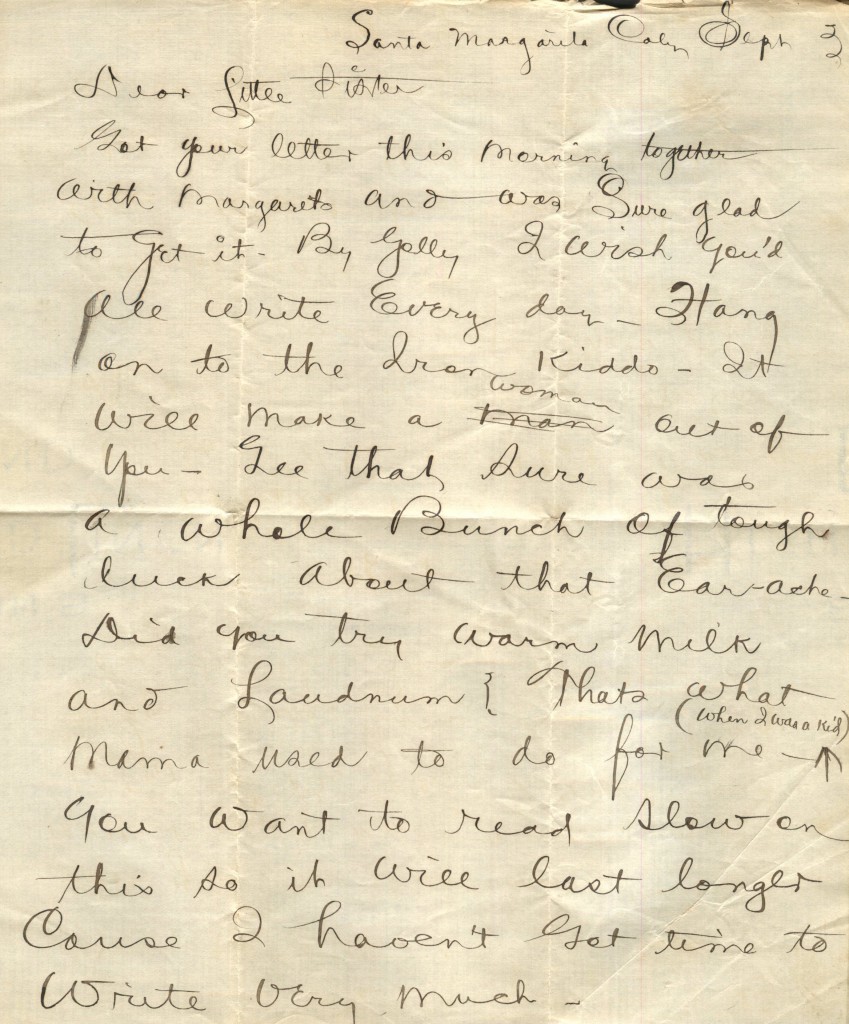 Santa Margarita Caly Sept 3
Dear Little Sister
Got your letter this morning together
with Margarets and was Sure glad
to Get it - By Golly I wish you'd
all write Every day - Hang
on to the Iron Kiddo - It
will make a man woman out of
you - Gee that sure was
a whole Bunch of tough
luck about that Ear-ache -
Did you try warm milk
and Laudnum } Thats what
Mama used to do for me - (when I was a kid)
you want to read slow on
this so it will last longer
Cause I haven't Got time to
Write very much -